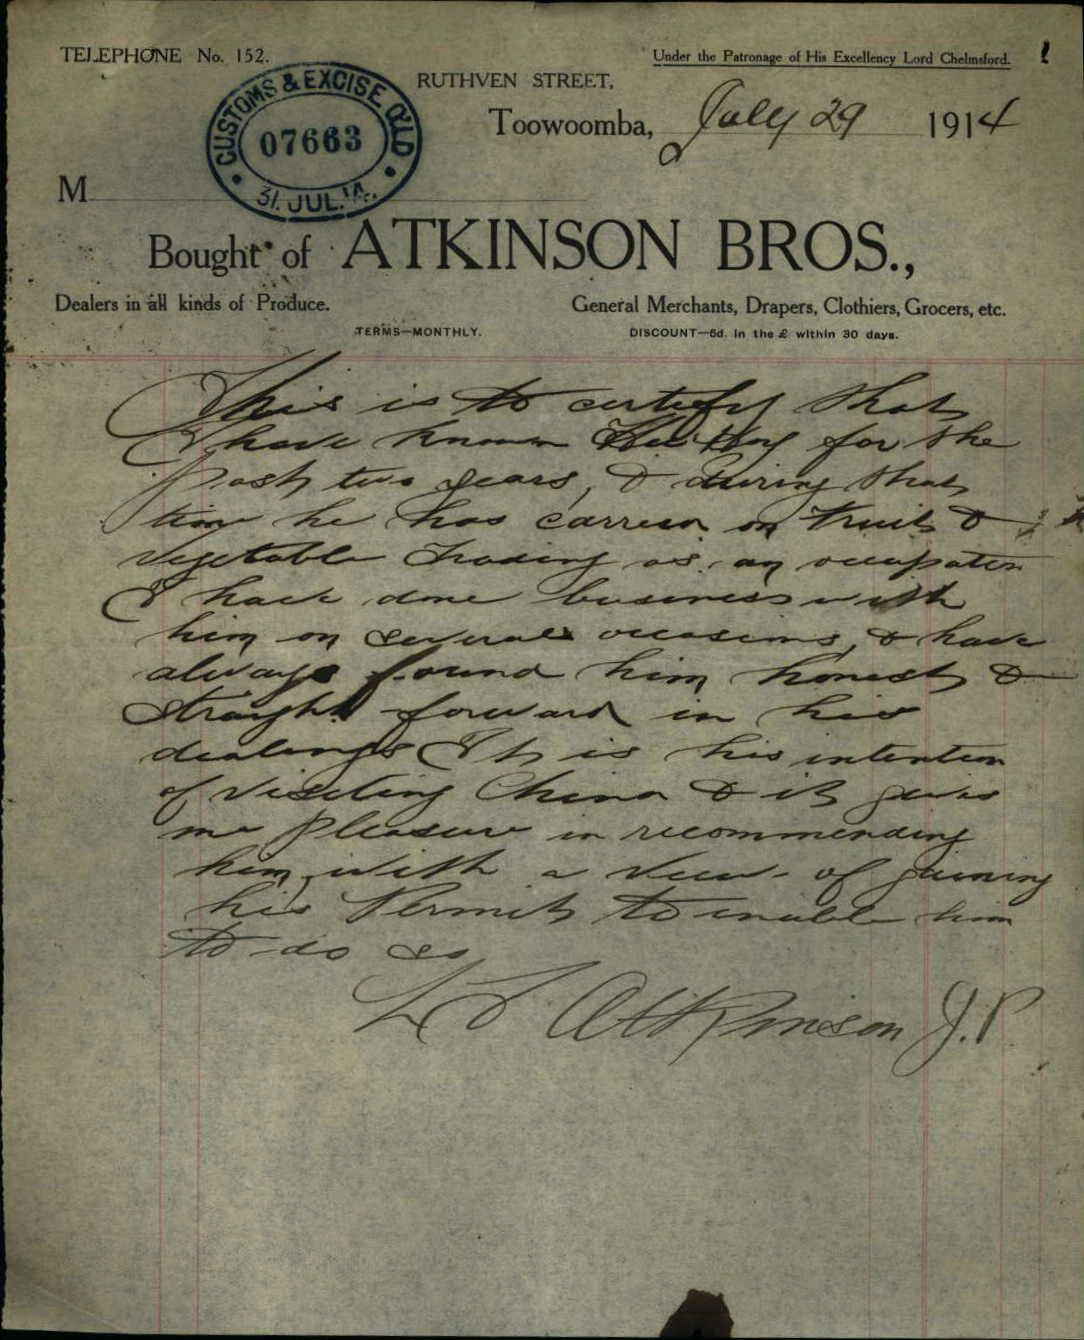 TELEPHONE No. 152.
Under the Patronage of His Excellency Lord Chelmsford.
RUTHVEN STREET,
Toowoomba, July 29 1914
CUSTOMS & EXCISE Q'LD
07663
31. JUL. 14.
M
Bought of ATKINSON BROS.,
Dealers in all kinds of Produce.
General Merchants, Drapers, Clothiers, Grocers, etc.
TERMS—MONTHLY.
DISCOUNT—6d. in the £ within 30 days.
This is to certify that
I have known for the
past two years, & during that
time he has carried on Fruit &
Vegetable Trading as an occupation
I have done business with
him on several occasions, & have
always found him honest &
straight forward in his
dealings It is his intention
of visiting China & it gives
me pleasure in recommending
him with a view of gaining
his Permit to enable him
to do so
Atkinson J.P